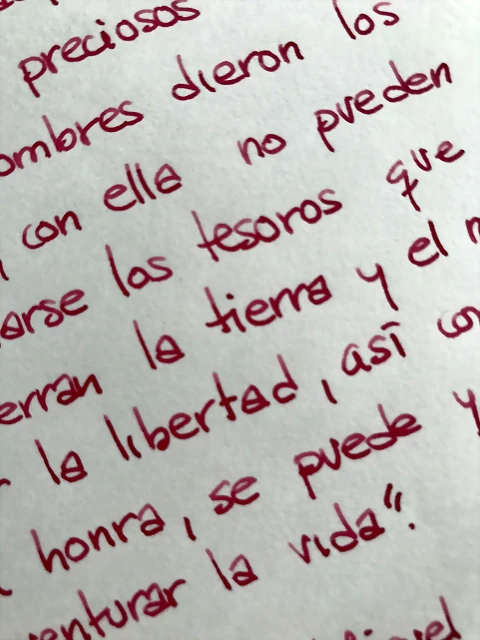 preciosos
ombres dieron los
con ella no pueden
arse los tesoros que
erran la tierra y el
la libertad, así co
honra, se puede y
enturar la vida".